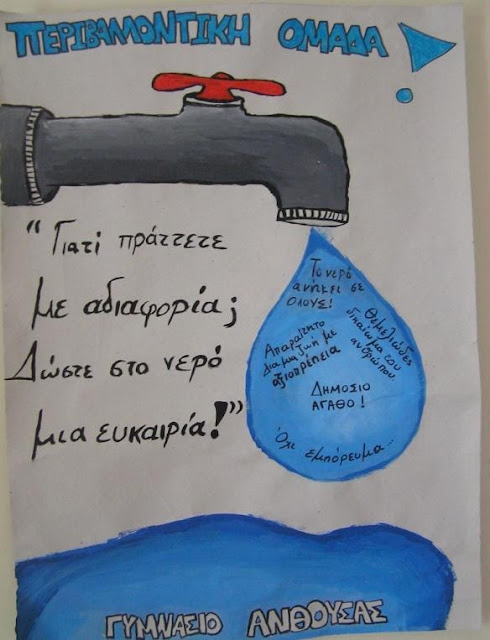 ΠΕΡΙΒΑΛΛΟΝΤΙΚΗ ΟΜΑΔΑ!
“Γιατί πράττετε
με αδιαφορία;
Δώστε στο νερό
μια ευκαιρία!”
Το νερό
ανήκει σε
όλους!
Απαραίτητο
για μια ζωή με
αξιοπρέπεια
Θεμελιώδες
δικαίωμα του
ανθρώπου
ΔΗΜΟΣΙΟ
ΑΓΑΘΟ!
Όχι εμπόρευμα...
ΓΥΜΝΑΣΙΟ ΑΝΘΟΥΣΑΣ